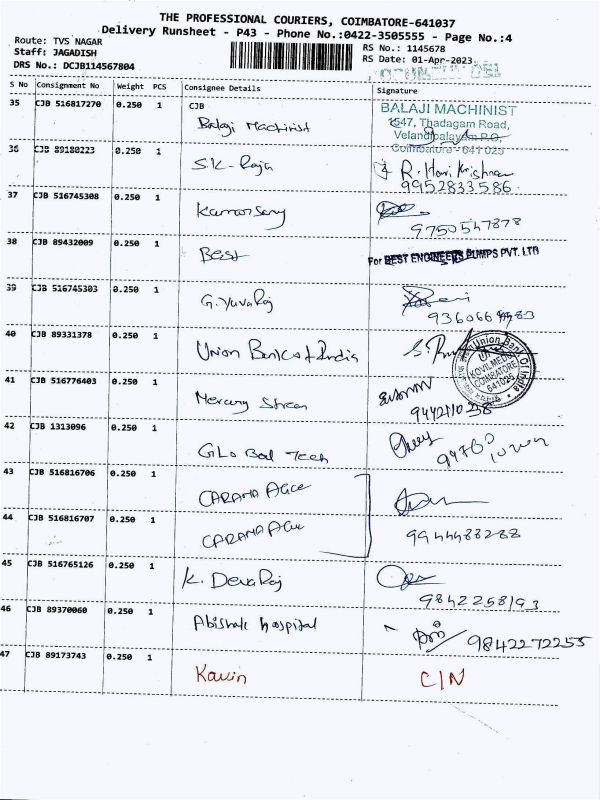 THE PROFESSIONAL COURIERS, COIMBATORE-641037
Delivery Runsheet - P43 - Phone No.:0422-3505555 - Page No.:4
Route: TVS NAGAR
Staff: JAGADISH
DRS No.: DCJB114567804
RS No.: 1145678
RS Date: 01-Apr-2023
S No Consignment No Weight PCS Consignee Details Signature
35 CJB 516817270 0.250 1 CJB
Balaji Machinist
BALAJI MACHINIST
1547, Thadagam Road,
Velandipalayam P.O,
Coimbatore - 641 025
36 CJB 89180223 0.250 1 S.K. Raja R. Hari Krishnan
9952833586
37 CJB 516745308 0.250 1 9750547878
38 CJB 89432009 0.250 1 Best For BEST ENGINEERS PUMPS PVT. LTD
39 CJB 516745303 0.250 1 G. Yuvaraj
40 CJB 89331378 0.250 1 Union Bank of India
Union Bank Of India
KOVILMEDU
COIMBATORE
641025
41 CJB 516776403 0.250 1 Mercury
42 CJB 1313096 0.250 1 Glo Bal Tech
43 CJB 516816706 0.250 1
44 CJB 516816707 0.250 1 9944488288
45 CJB 516765126 0.250 1 K. Devaraj
9842258193
46 CJB 89370060 0.250 1 Abishek hospital 9842272255
47 CJB 89173743 0.250 1 Kavin C/N